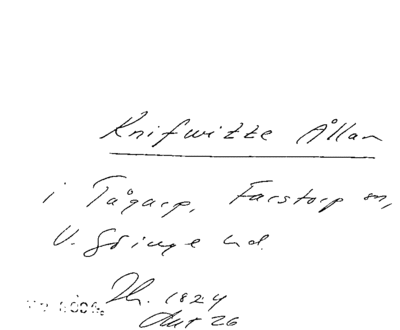 Knifwitze Ållan
i Tågarp, Farstorp sn,
V. Göinge hd.
Th. 1824